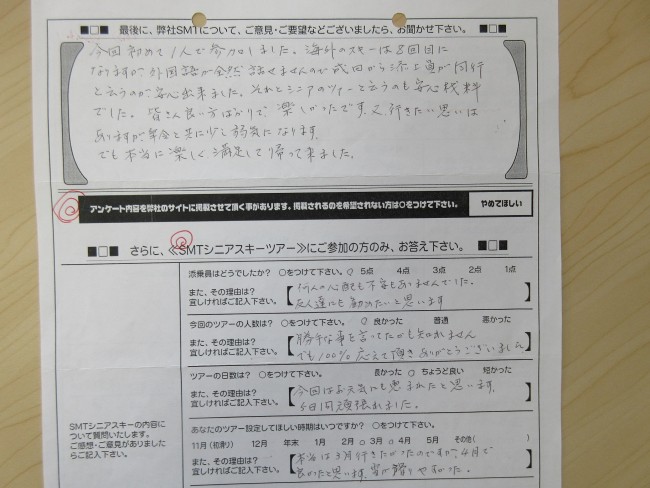 ■□■ 最後に、弊社SMTについて、ご意見・ご要望などございましたら、お聞かせ下さい。 ■□■
今回初めて1人で参加しました。海外のスキーは8回目に
なりますが外国語が全然話せませんので成田から添上員が同行
と云うのが安心出来ました。それとシニアのツアーと云うのも安心材料
でした。皆さん良い方ばかりで、楽しかったです。又行きたい思いは
ありますが年令と共に少し弱気になります。
でも本当に楽しく満足して帰って来ました。
アンケート内容を弊社のサイトに掲載させて頂く事があります。掲載されるのを希望されない方は○をつけて下さい。 やめてほしい
■□■ さらに、≪SMTシニアスキーツアー≫にご参加の方のみ、お答え下さい。 ■□■
添乗員はどうでしたか? ○をつけて下さい。 ○ 5点 4点 3点 2点 1点
また、その理由は?
宜しければご記入下さい。
【何の心配も不安もありませんでした。
友人達にも勧めたいと思います】
今回のツアーの人数は? ○をつけて下さい。 ○ 良かった 普通 悪かった
また、その理由は?
宜しければご記入下さい。
【勝手な事を言ってたかも知れません
でも100%応えて頂きありがとうございました】
ツアーの日数は? ○をつけて下さい。 長かった ○ ちょうど良い 短かった
また、その理由は?
宜しければご記入下さい。
【今回はお天気にも恵まれたと思います。
5日間頑張れました。】
SMTシニアスキーの内容に
ついて質問いたします。
ご感想・ご意見がありました
らご記入下さい。
あなたのツアー設定してほしい時期はいつですか? ○をつけて下さい。
11月(初滑り) 12月 年末 1月 2月 ○3月 ○4月 5月 その他( )
また、その理由は?
宜しければご記入下さい。
【本当は3月行きたかったのですが、4月で
良かったと思います。雪が滑りやすかった。】